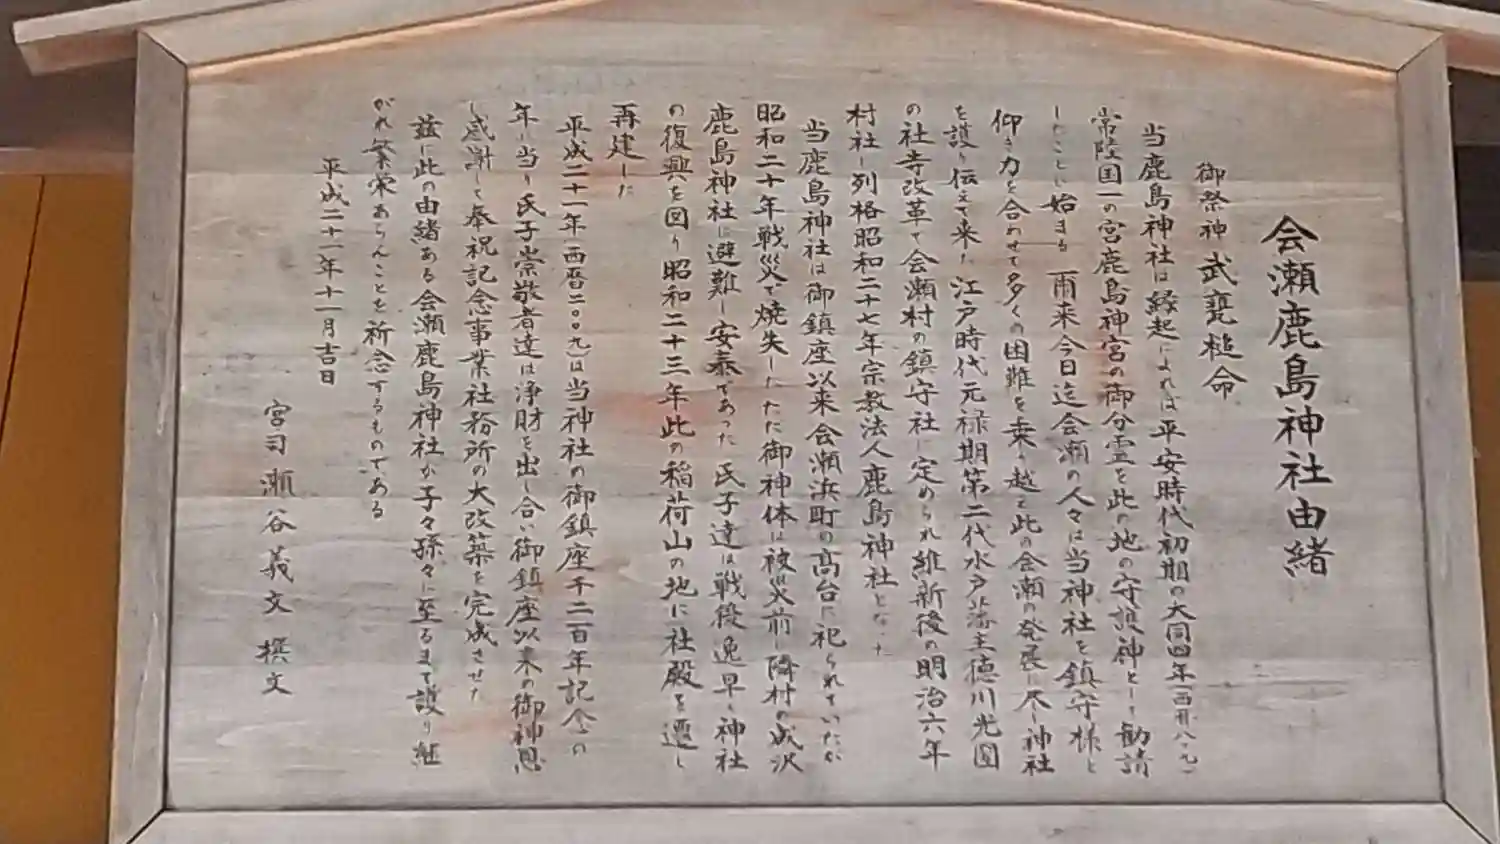 会瀬鹿島神社由緒
御祭神 武甕槌命
当鹿島神社は縁起によれば平安時代初期の大同四年(西暦八〇九)
常陸国一の宮鹿島神宮の御分霊を此の地の守護神として勧請
したことに始まる 爾来今日迄会瀬の人々は当神社を鎮守様と
仰ぎ力を合わせて多くの困難を乗り越え此の会瀬の発展に尽し神社
を護り伝えて来た 江戸時代元禄期第二代水戸藩主徳川光圀
の社寺改革で会瀬村の鎮守社に定められ維新後の明治六年
村社に列格昭和二十七年宗教法人鹿島神社となった
当鹿島神社は御鎮座以来会瀬浜町の高台に祀られていたが
昭和二十年戦災で焼失した ただ御神体は被災前に隣村の成沢
鹿島神社に避難し安泰であった 氏子達は戦後逸早く神社
の復興を図り昭和二十三年此の稲荷山の地に社殿を遷し
再建した
平成二十一年(西暦二〇〇九)は当神社の御鎮座千二百年記念の
年に当り氏子崇敬者達は浄財を出し合い御鎮座以来の御神恩
に感謝して奉祝記念事業社務所の大改築を完成させた
茲に此の由緒ある会瀬鹿島神社が子々孫々に至るまで護り継
がれ繁栄あらんことを祈念するものである
平成二十一年十一月吉日
宮司 瀬谷義文 撰文